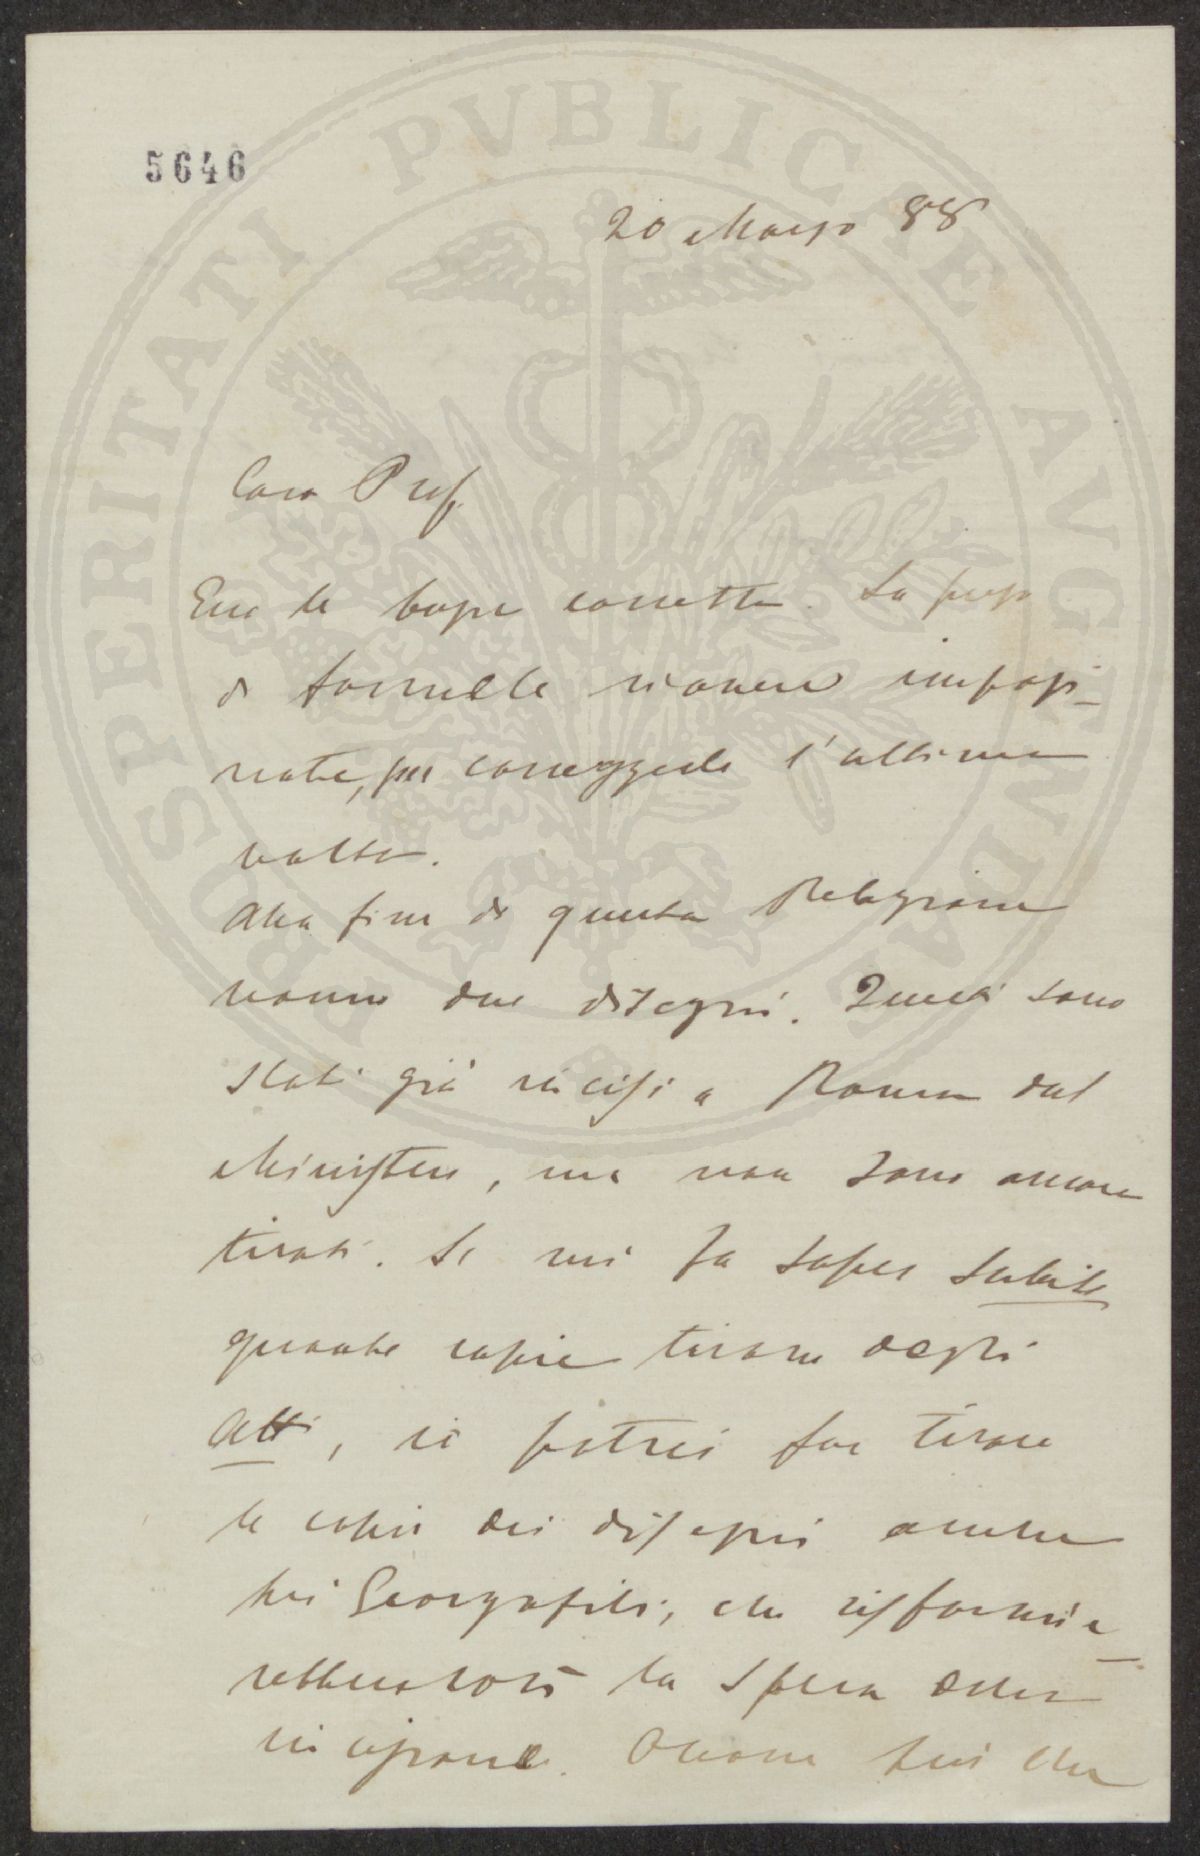 PROSPERITATI PVBLICAE AVGENDAE
5646
20 Marzo 88
Caro Prof.
Ecco le bozze corrette. La prego
di farmelle riavere impagi-
nate, per correggerle l'ultima
volta.
Alla fine di questa Relazione
vanno due disegni. Questi sono
stati già incisi a Roma dal
Ministero, ma non sono ancora
tirati. Se mi fa saper subito
quante copie tirano degli
Atti, io potrei far tirare
le copie dei disegni anche
pei Georgofili, che risparmie-
rebbero così la spesa della
incisione. Occorre però che